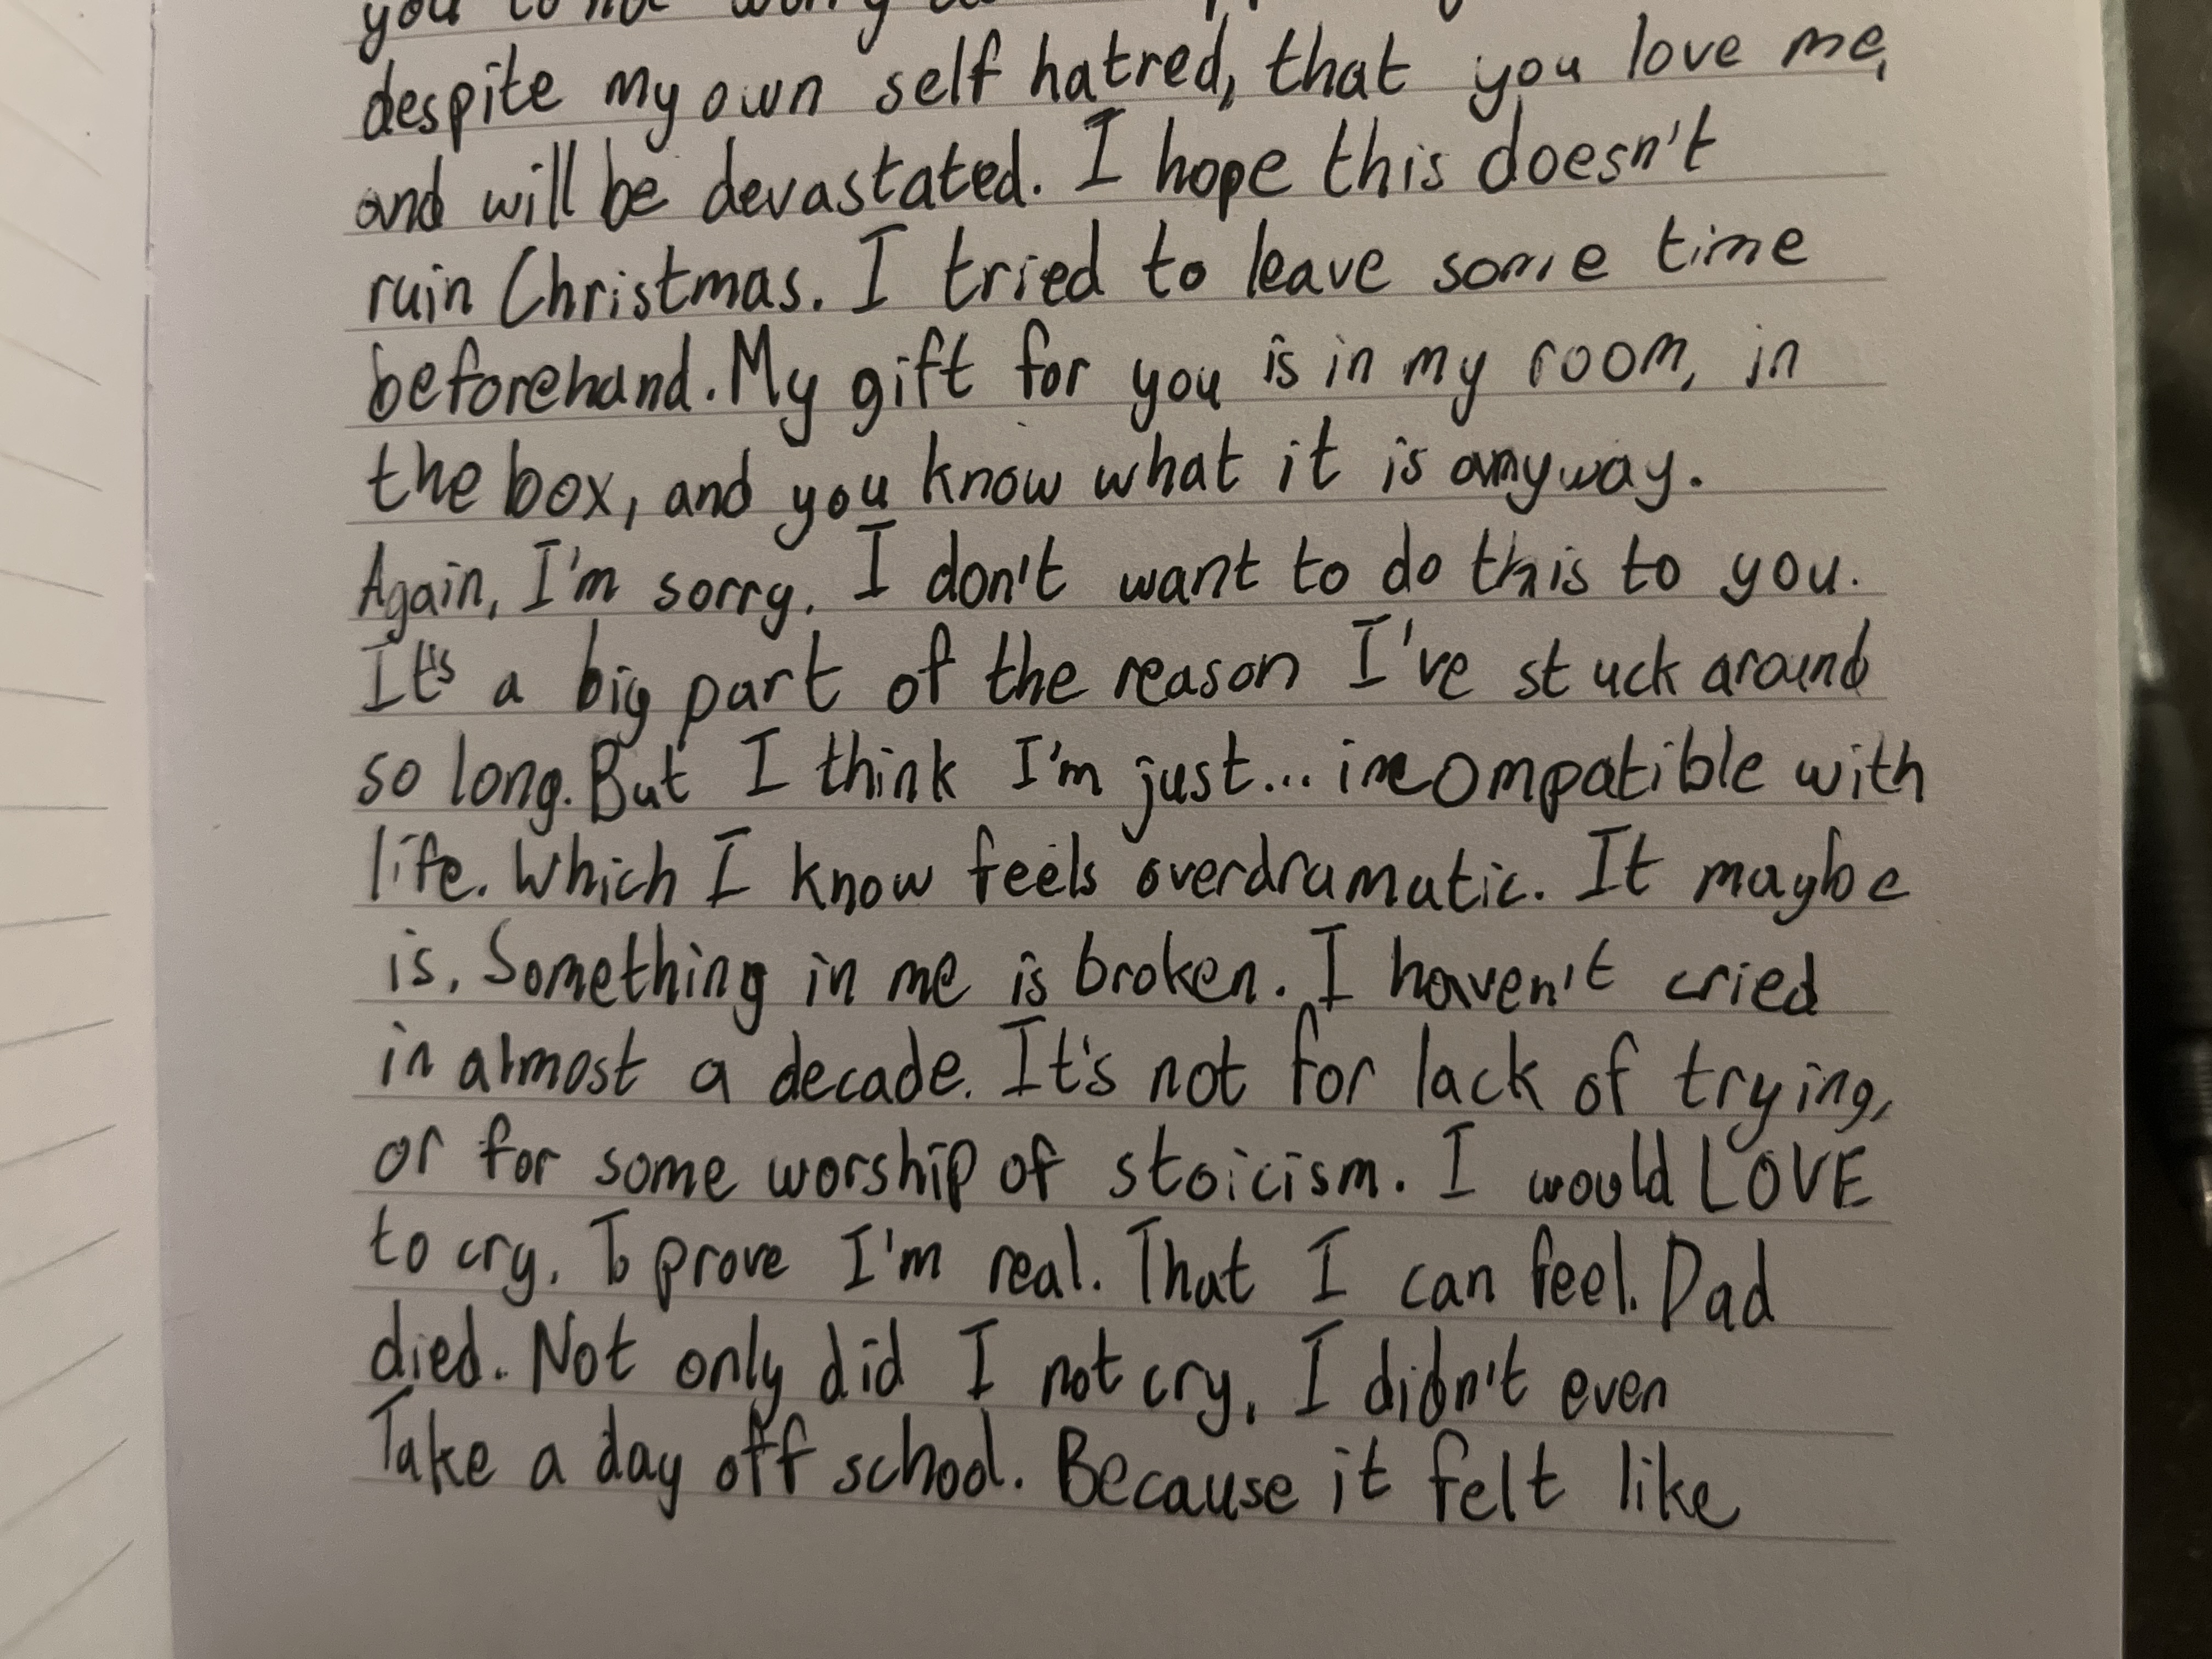 you to not worry
despite my own self hatred, that you love me,
and will be devastated. I hope this doesn't
ruin Christmas. I tried to leave some time
beforehand. My gift for you is in my room, in
the box, and you know what it is anyway.
Again, I'm sorry. I don't want to do this to you.
It's a big part of the reason I've stuck around
so long. But I think I'm just... incompatible with
life. Which I know feels overdramatic. It maybe
is. Something in me is broken. I haven't cried
in almost a decade. It's not for lack of trying,
or for some worship of stoicism. I would LOVE
to cry. To prove I'm real. That I can feel. Dad
died. Not only did I not cry, I didn't even
Take a day off school. Because it felt like